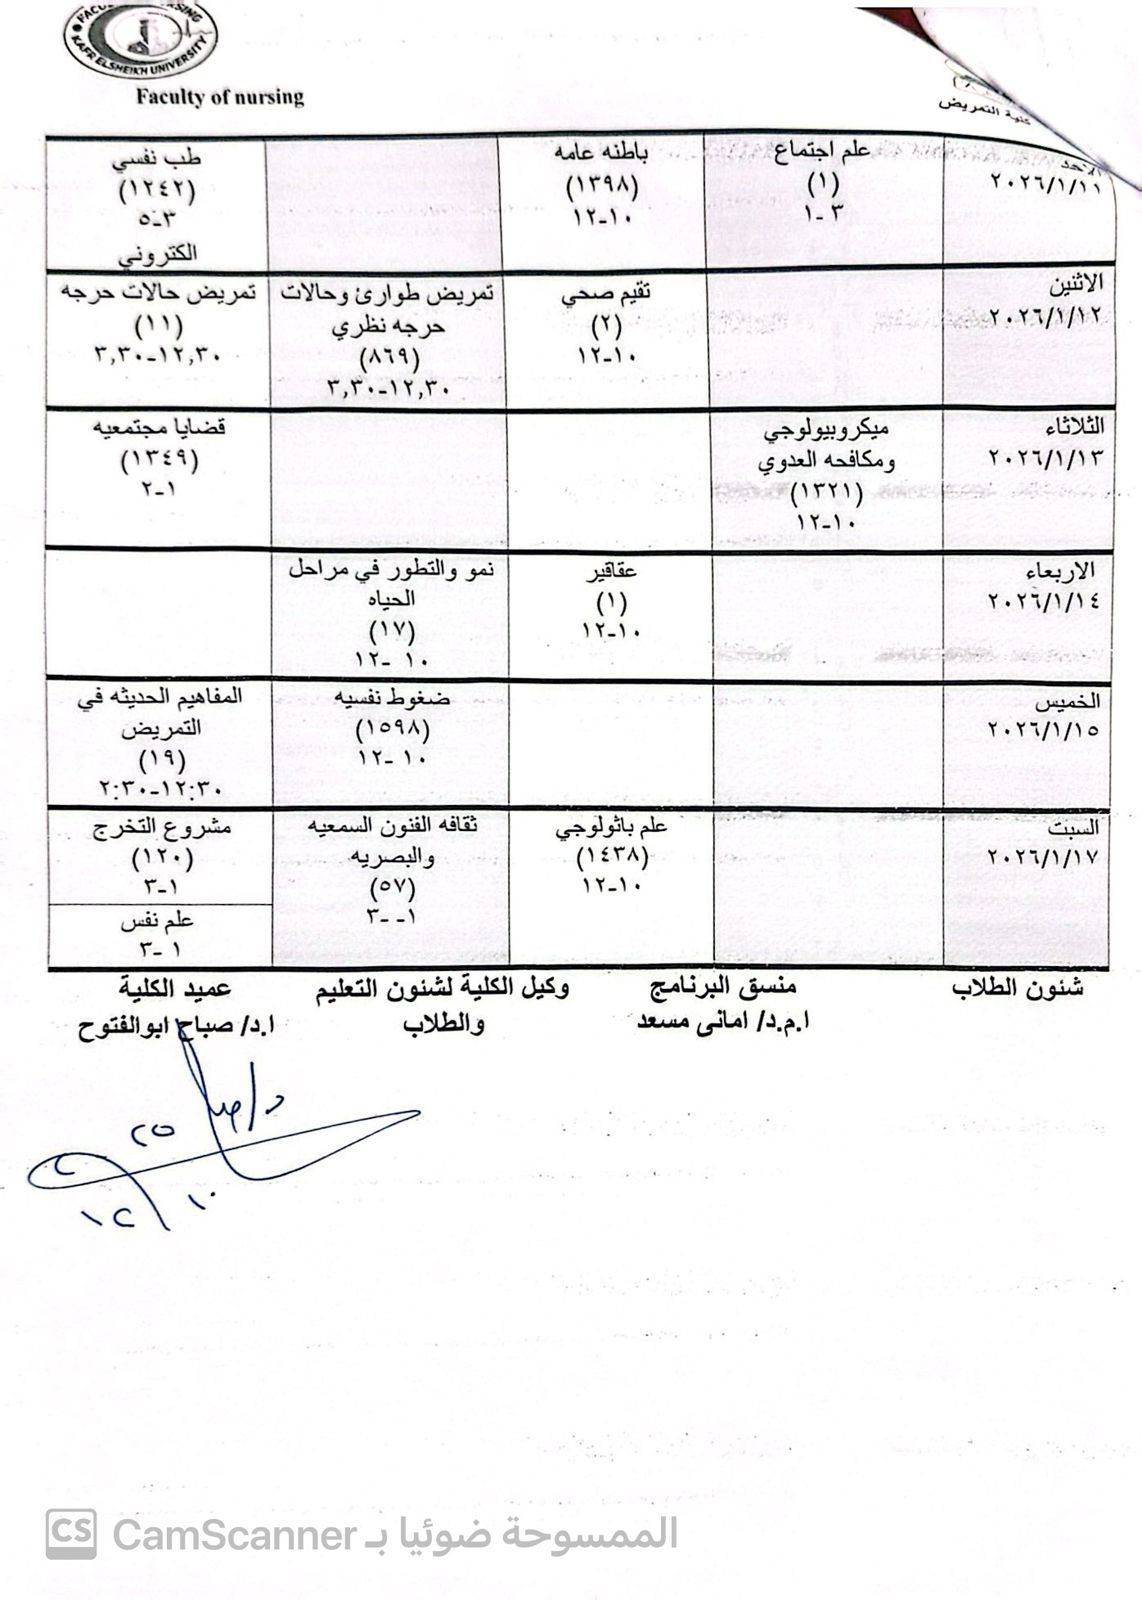 FACULTY OF NURSING
KAFR ELSHEIKH UNIVERSITY
Faculty of nursing
كلية التمريض
الاحد
٢٠٢٦/١/١١
علم اجتماع
(١)
٣ -١
باطنه عامه
(١٣٩٨)
١٠-١٢
طب نفسي
(١٢٤٢)
٣-٥
الكتروني
الاثنين
٢٠٢٦/١/١٢
تقيم صحي
(٢)
١٠-١٢
تمريض طوارئ وحالات
حرجه نظري
(٨٦٩)
١٢,٣٠-٣,٣٠
تمريض حالات حرجه
(١١)
١٢,٣٠-٣,٣٠
الثلاثاء
٢٠٢٦/١/١٣
ميكروبيولوجي
ومكافحه العدوي
(١٣٢١)
١٠-١٢
قضايا مجتمعيه
(١٣٤٩)
١-٢
الاربعاء
٢٠٢٦/١/١٤
عقاقير
(١)
١٠-١٢
نمو والتطور في مراحل
الحياه
(١٧)
١٠ -١٢
الخميس
٢٠٢٦/١/١٥
ضغوط نفسيه
(١٥٩٨)
١٠ -١٢
المفاهيم الحديثه في
التمريض
(١٩)
١٢:٣٠-٢:٣٠
السبت
٢٠٢٦/١/١٧
علم باثولوجي
(١٤٣٨)
١٠-١٢
ثقافه الفنون السمعيه
والبصريه
(٥٧)
١- -٣
مشروع التخرج
(١٢٠)
١-٣
علم نفس
١ -٣
شئون الطلاب
منسق البرنامج
ا.م.د/ امانى مسعد
وكيل الكلية لشئون التعليم
والطلاب
عميد الكلية
ا.د/ صباح ابوالفتوح
CS CamScanner الممسوحة ضوئيا بـ